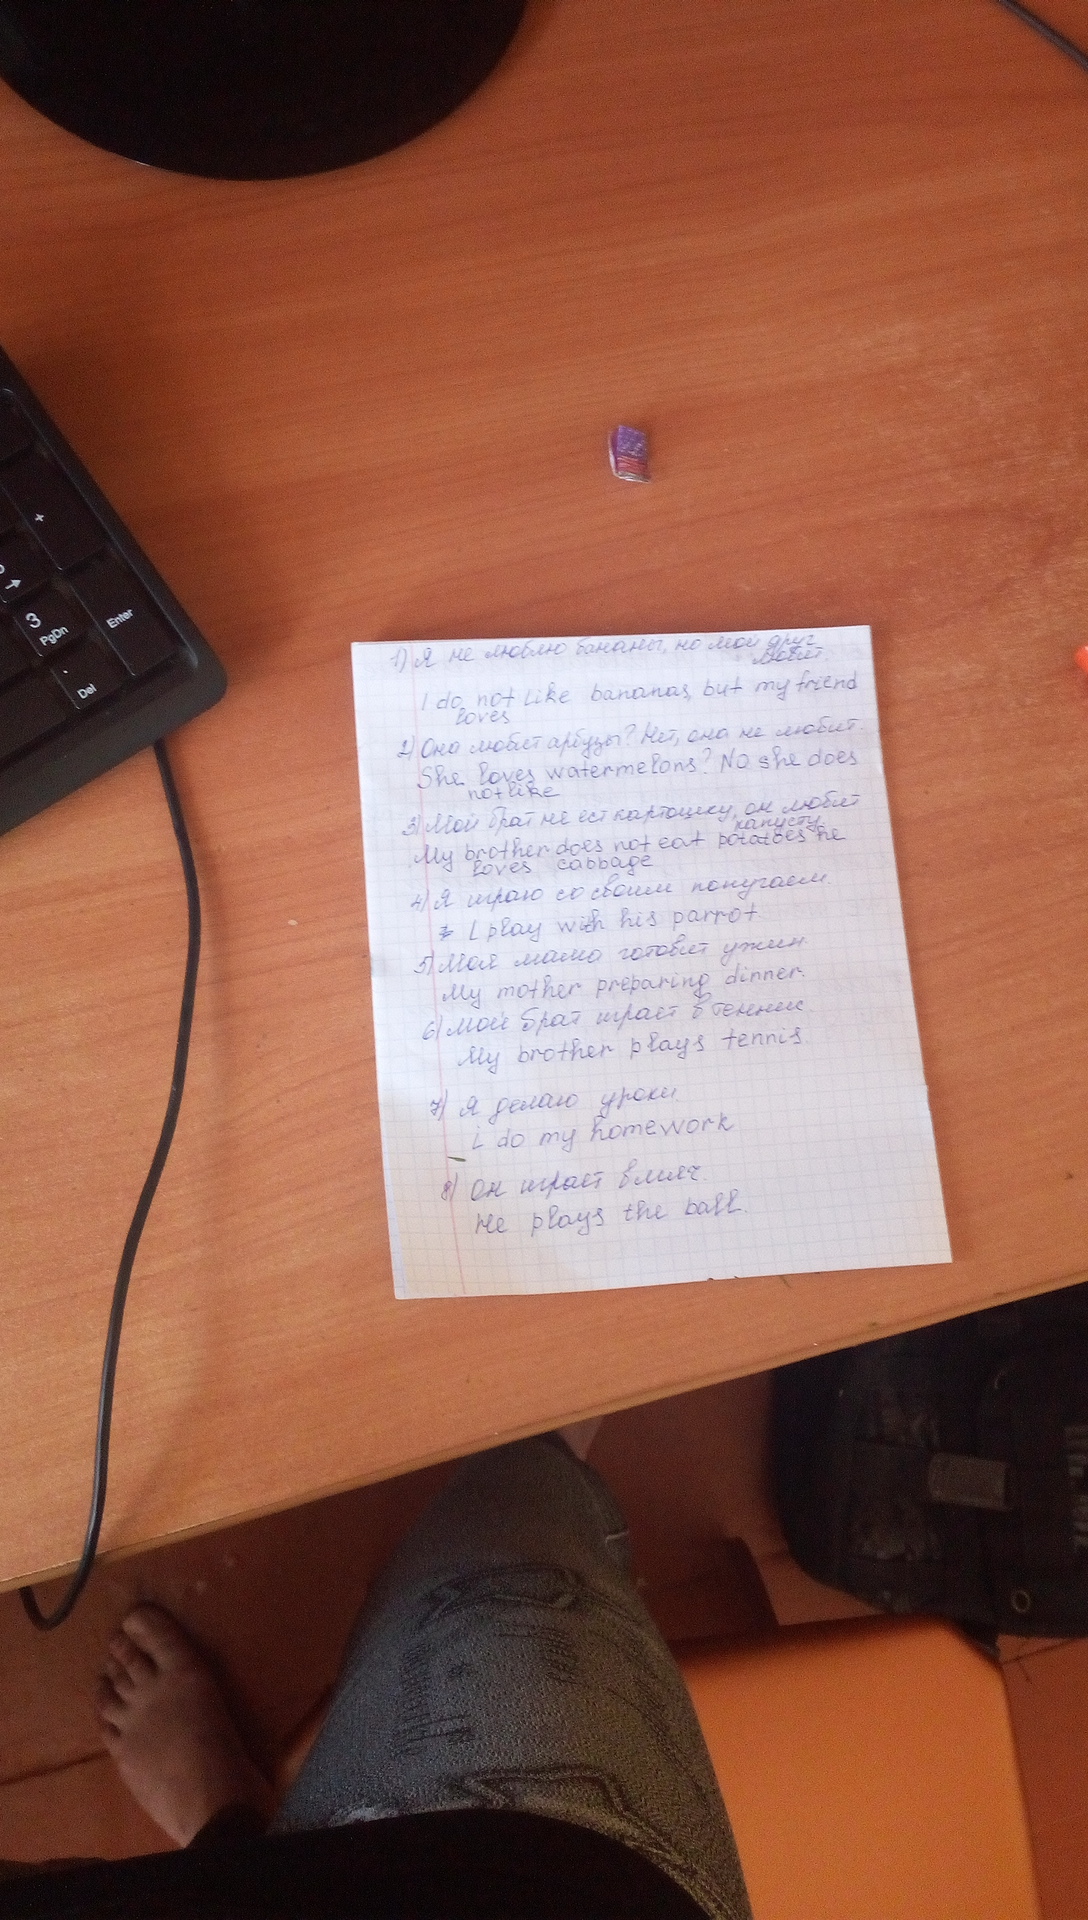 +
3
PgDn
Enter
.
Del
1) Я не люблю бананы, но мой друг
любит.
I do not like bananas, but my friend
loves
2) Она любит арбузы? Нет, она не любит.
She loves watermelons? No she does
not like
3) Мой брат не ест картошку, он любит
капусту.
My brother does not eat potatoes he
loves cabbage
4) Я играю со своим попугаем.
I play with his parrot
5) Моя мама готовит ужин
My mother preparing dinner.
6) Мой брат играет в теннис.
My brother plays tennis
7) Я делаю уроки
i do my homework
8) Он играет в мяч.
He plays the ball.